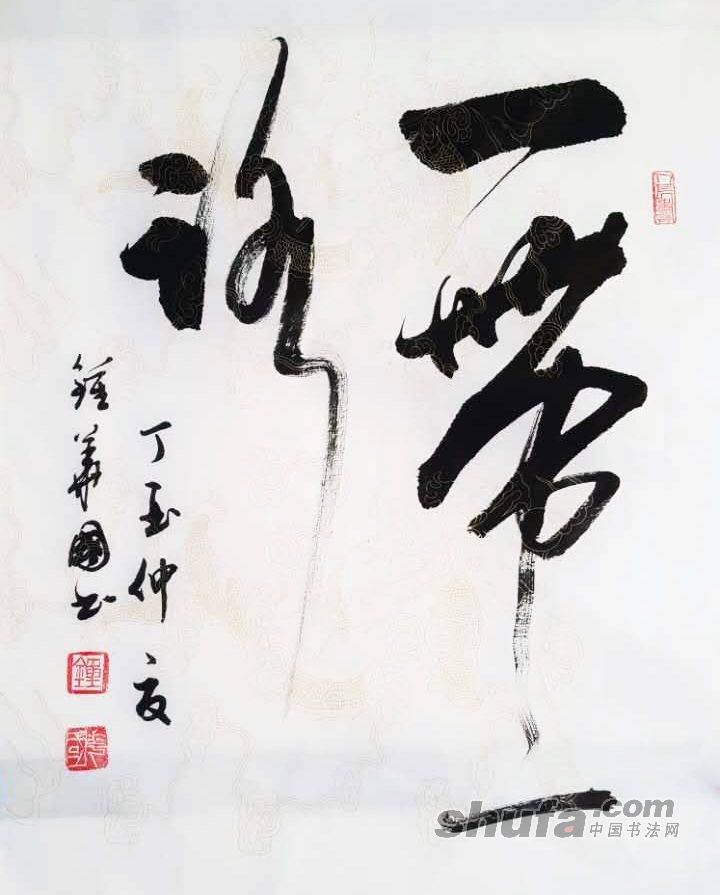 一帶一
路
丁酉仲夏
鍾華國书
鍾
shufa.com
中国书法网